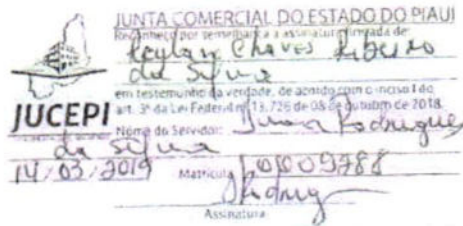 JUNTA COMERCIAL DO ESTADO DO PIAUI
Reconheço por semelhança a assinatura firmada de
Leylan Chaves Ribeiro
da Silva
em testemunho da verdade, de acordo com o inciso I do
art. 3º da Lei Federal nº 13.726 de 08 de outubro de 2018.
JUCEPI
Nome do Servidor: Juan Rodrigues
da Silva
14/03/2019
Matrícula
Assinatura